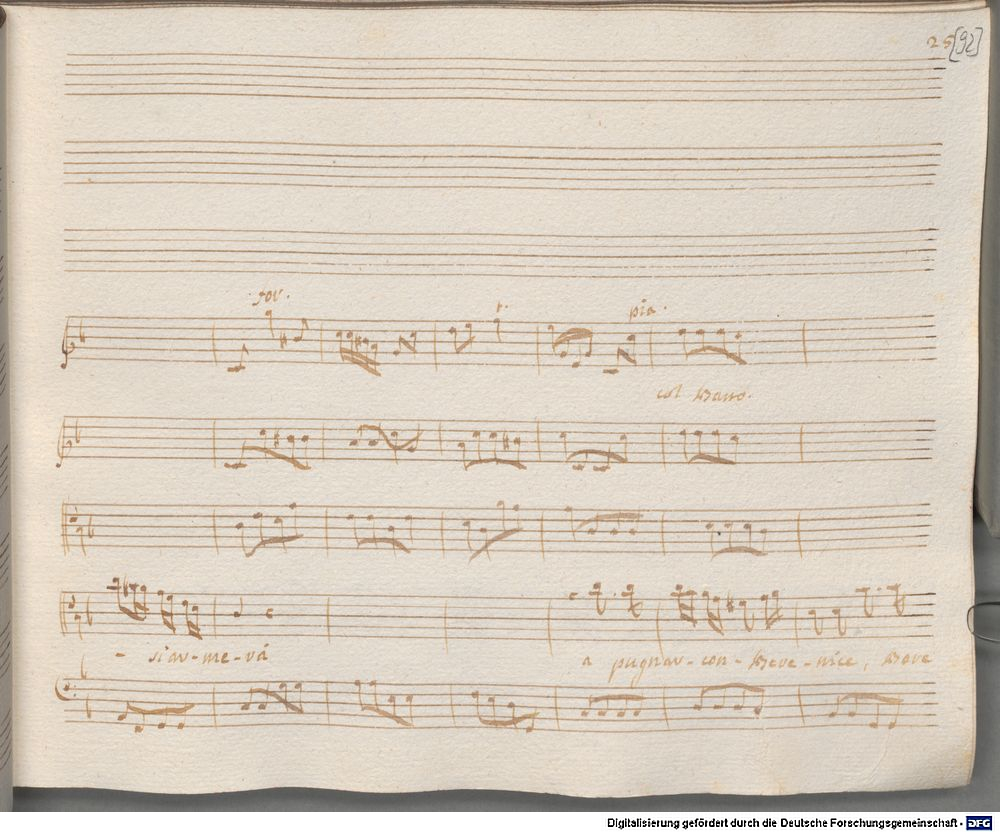 25 [92]
for.
f.
pia.
col Basso.
- si ar-me-rá
a pugnar-con-Bere-nice, Bere
Digitalisierung gefördert durch die Deutsche Forschungsgemeinschaft - DFG